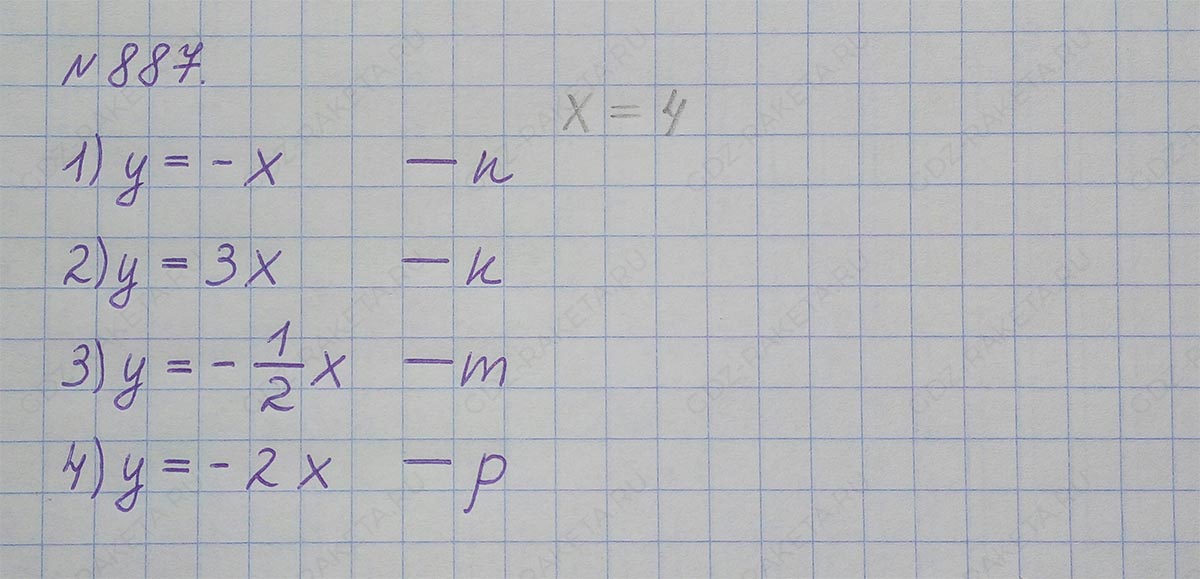 №887.
x = 4
1) y = - x — n
2) y = 3x — к
3) y = - 1/2 x — m
4) y = - 2x — p
GDZ-RAKETA.RU